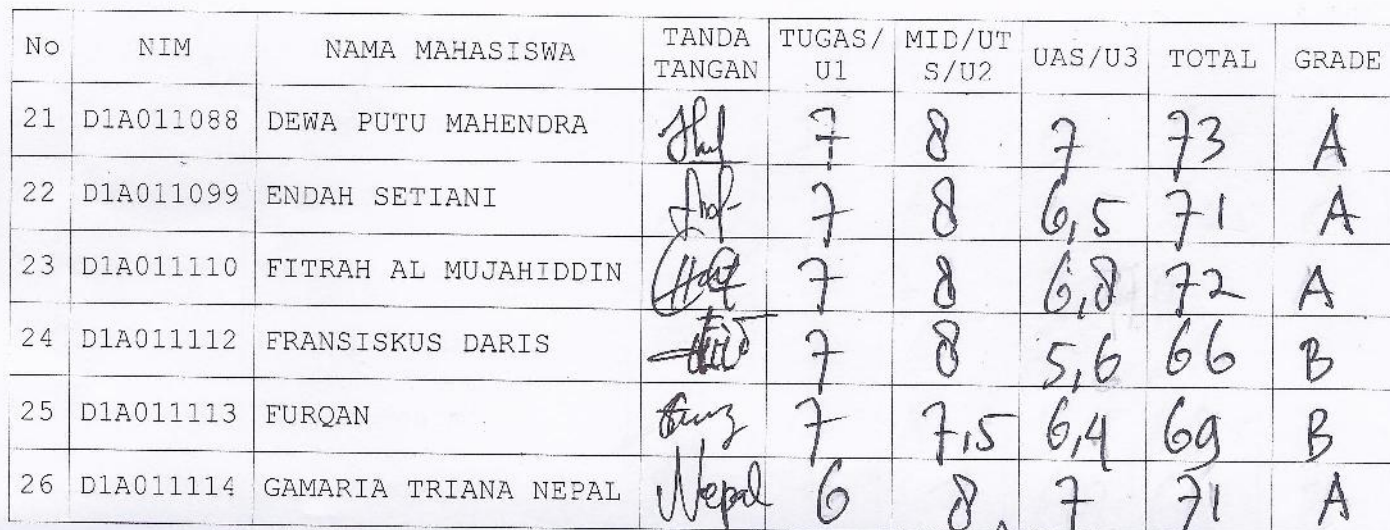 No NIM NAMA MAHASISWA TANDA TANGAN TUGAS/ U1 MID/UT S/U2 UAS/U3 TOTAL GRADE
21 D1A011088 DEWA PUTU MAHENDRA 7 8 7 73 A
22 D1A011099 ENDAH SETIANI 7 8 6,5 71 A
23 D1A011110 FITRAH AL MUJAHIDDIN 7 8 6,8 72 A
24 D1A011112 FRANSISKUS DARIS 7 8 5,6 66 B
25 D1A011113 FURQAN 7 7,5 6,4 69 B
26 D1A011114 GAMARIA TRIANA NEPAL Nepal 6 8 7 71 A